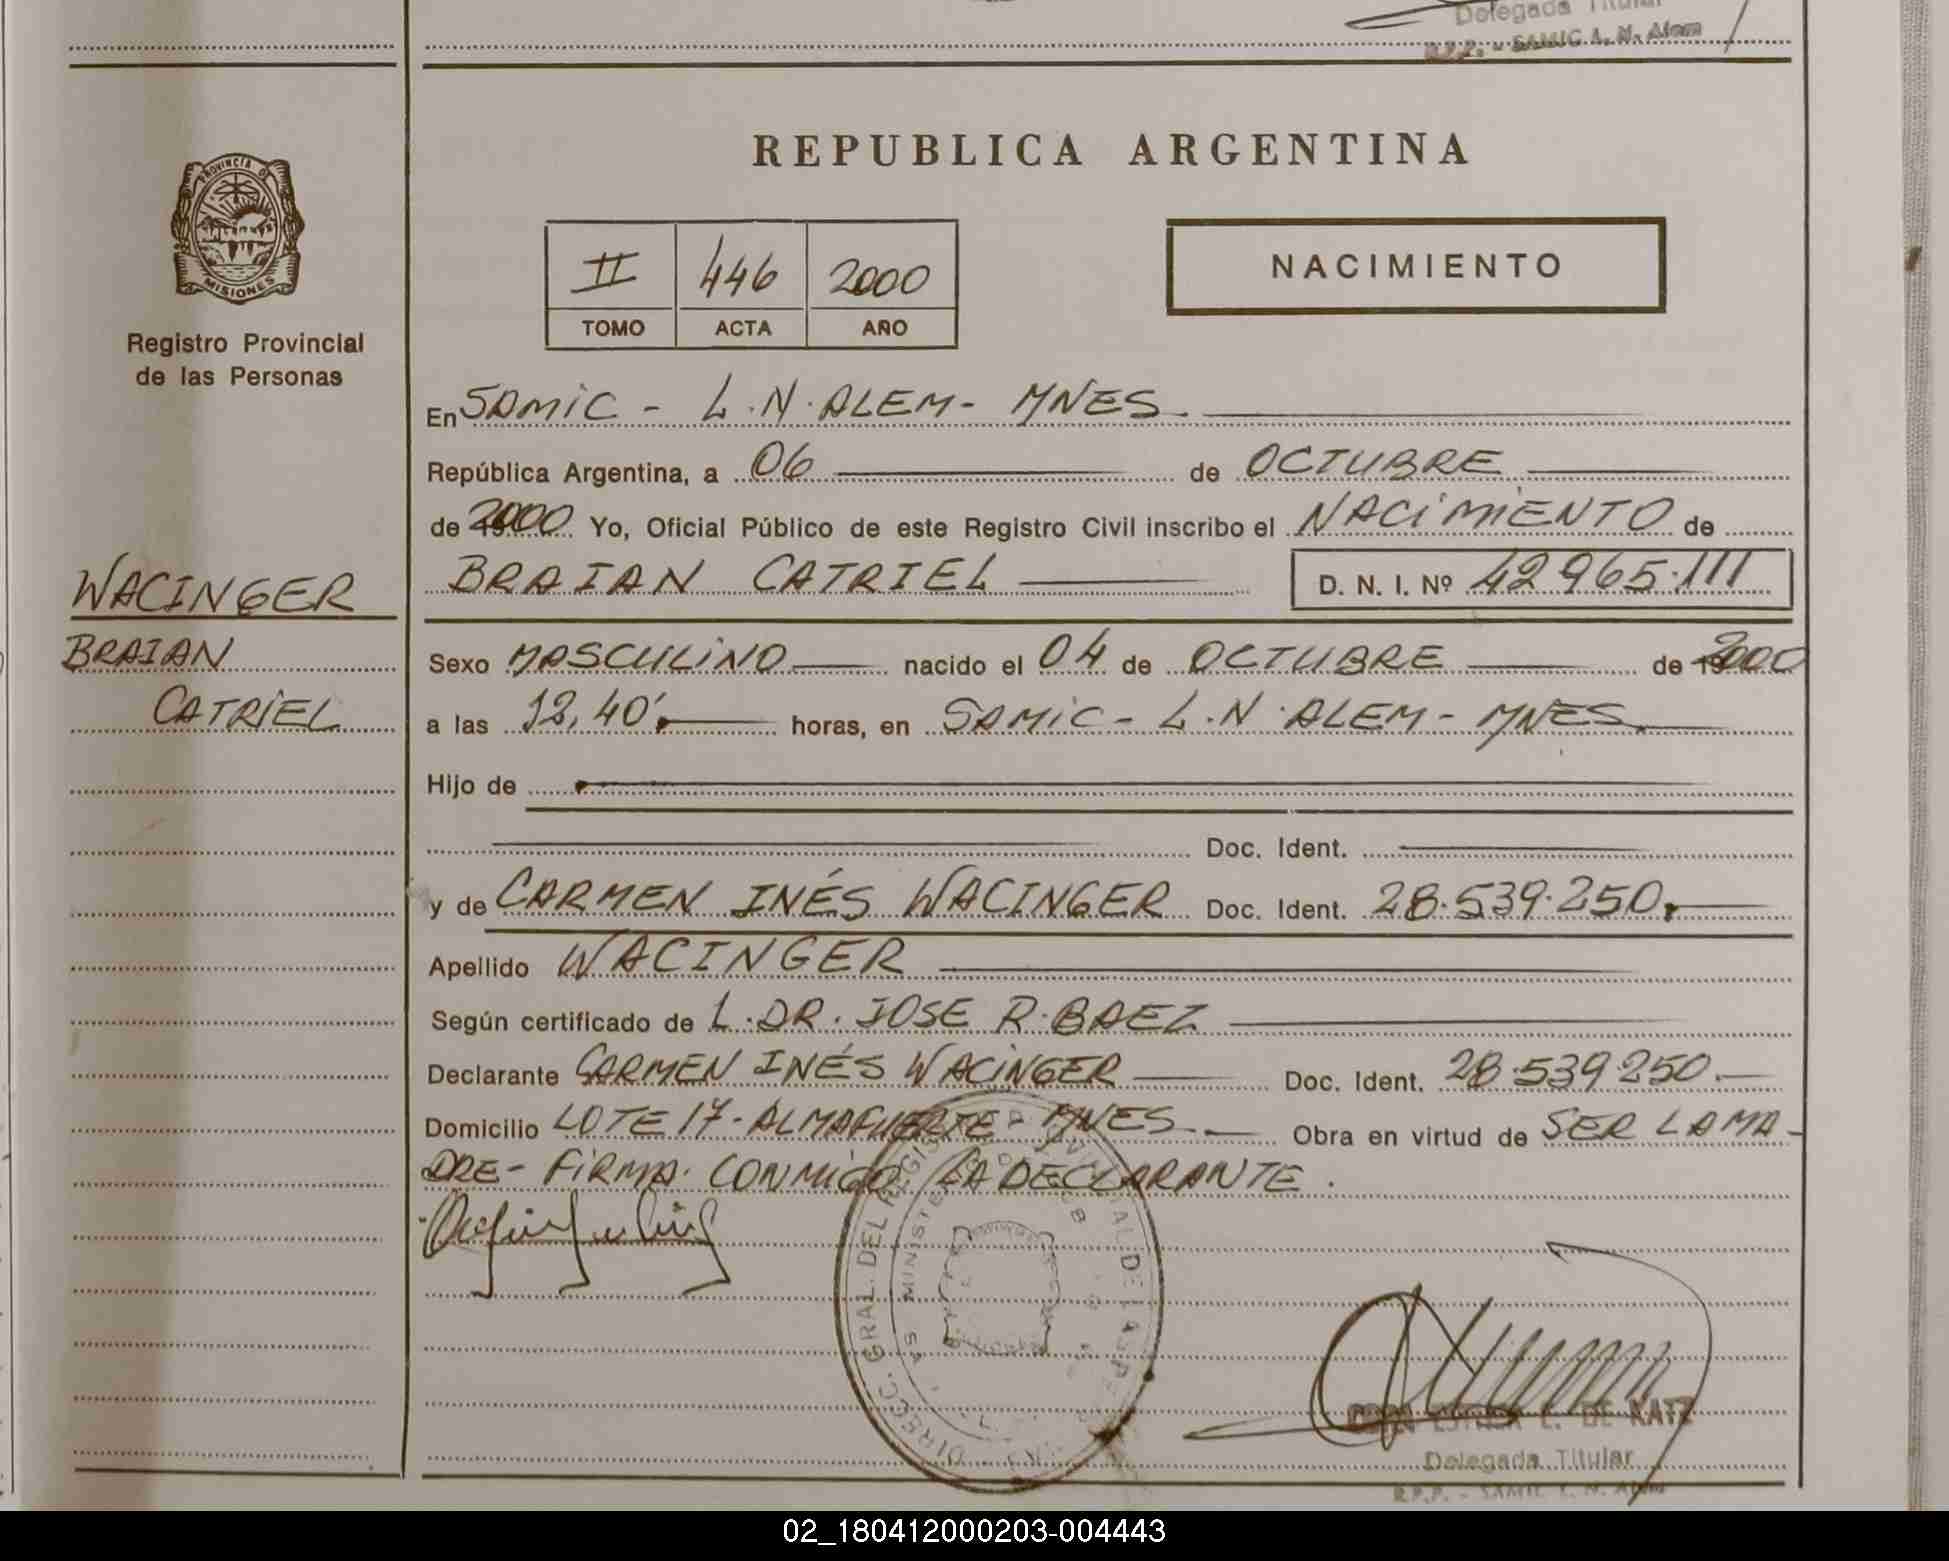 Delegada Titular
R.P.P. - SAMIC L. N. Alem
REPUBLICA ARGENTINA
PROVINCIA DE
MISIONES
Registro Provincial
de las Personas
II 446 2000
TOMO ACTA AÑO
NACIMIENTO
En SAMIC - L.N. ALEM - MNES.
República Argentina, a 06 de OCTUBRE
de 2000 Yo, Oficial Público de este Registro Civil inscribo el NACIMIENTO de
BRAIAN CATRIEL D. N. I. Nº 42965.111
WACINGER
BRAIAN
CATRIEL
Sexo MASCULINO nacido el 04 de OCTUBRE de 2000
a las 12,40' horas, en SAMIC - L.N. ALEM - MNES.
Hijo de
Doc. Ident.
y de CARMEN INÉS WACINGER Doc. Ident. 28.539.250.
Apellido WACINGER
Según certificado de L. DR. JOSE R. BAEZ
Declarante CARMEN INÉS WACINGER Doc. Ident. 28.539.250.
Domicilio LOTE 17 - ALMAFUERTE - MNES. Obra en virtud de SER LA MA-
DRE - FIRMA CONMIGO LA DECLARANTE.
DIRECC. GRAL. DEL REGIST
DE KATZ
Delegada Titular
R.P.P. - SAMIC L. N. Alem
02_180412000203-004443